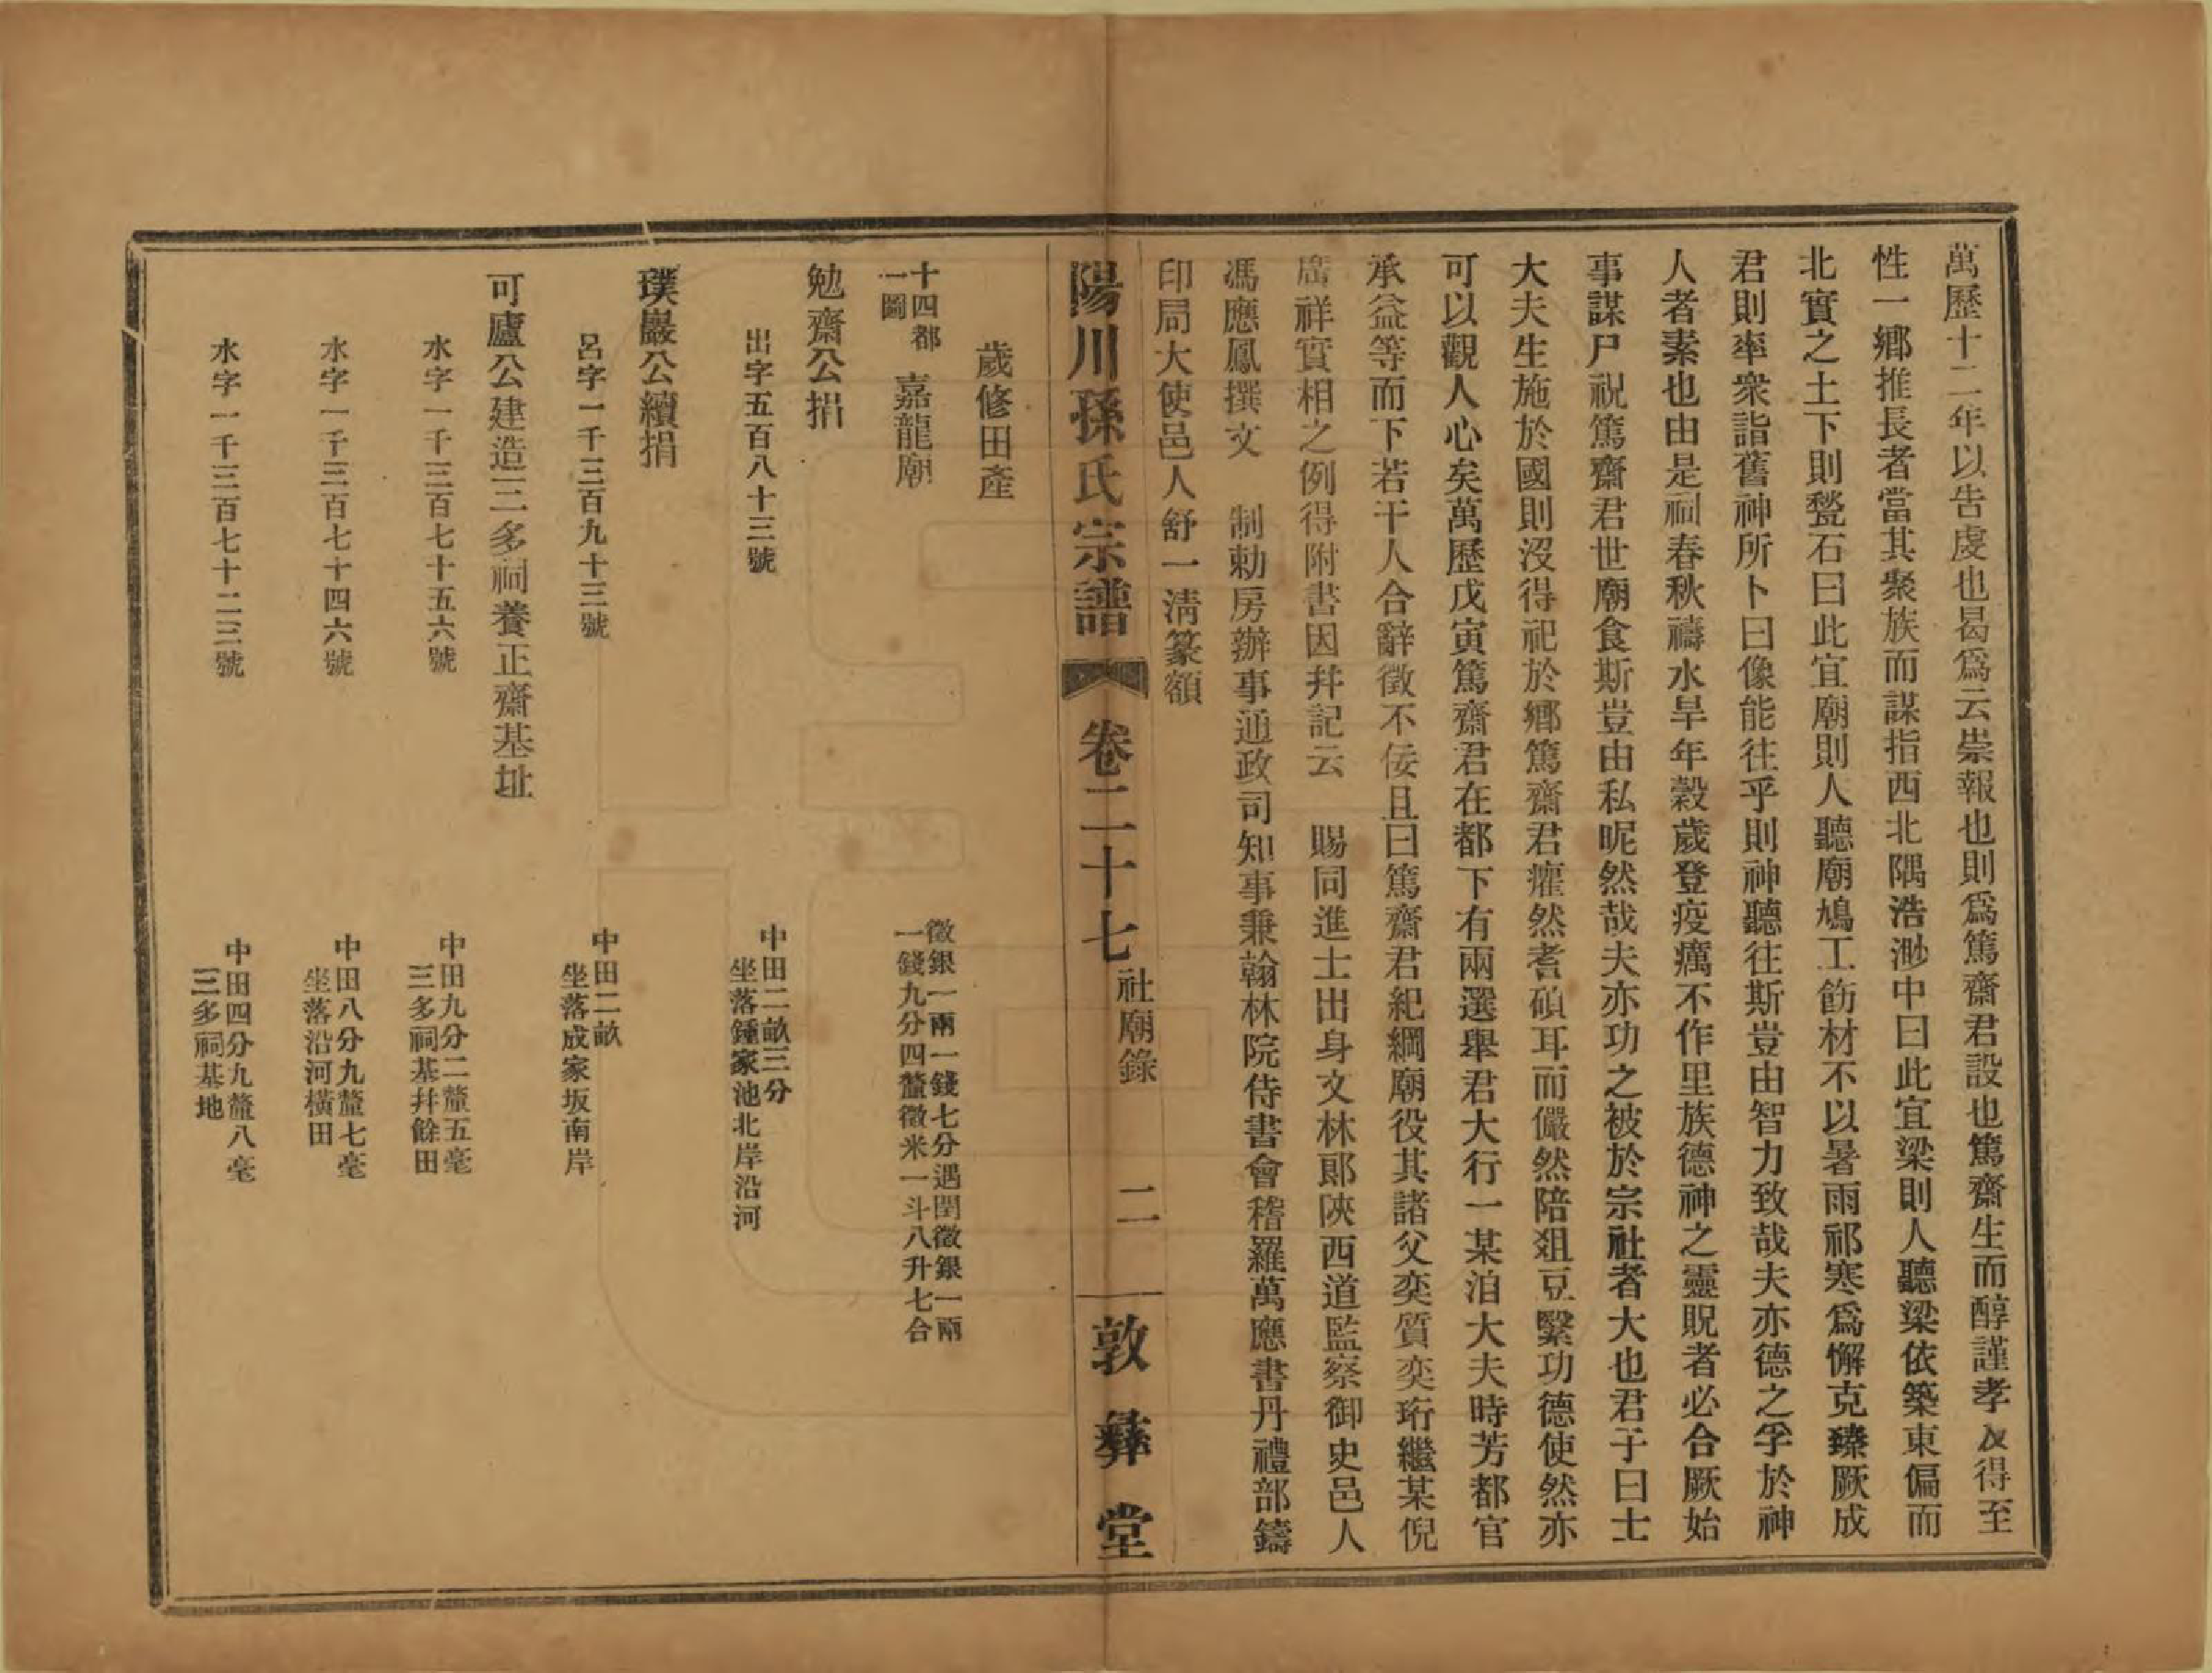 萬歷十二年以告虔也曷爲云崇報也則爲篤齋君設也篤齋生而醇謹孝友得至
性一鄉推長者當其聚族而謀指西北隅浩渺中曰此宜梁則人聽梁依築東偏而
北實之土下則甃石曰此宜廟則人聽廟鳩工飭材不以暑雨祁寒爲懈克臻厥成
君則率衆詣舊神所卜曰像能往乎則神聽往斯豈由智力致哉夫亦德之孚於神
人者素也由是祠春秋禱水旱年穀歲登疫癘不作里族德神之靈貺者必合厥始
事謀尸祝篤齋君世廟食斯豈由私昵然哉夫亦功之被於宗社者大也君子曰士
大夫生施於國則沒得祀於鄉篤齋君癯然耆碩耳而儼然陪俎豆繄功德使然亦
可以觀人心矣萬歷戊寅篤齋君在都下有兩選舉君大行一某洎大夫時芳都官
承益等而下若干人合辭徵不佞且曰篤齋君紀綱廟役其諸父奕質奕珩繼某倪
廣祥實相之例得附書因幷記云　賜同進士出身文林郎陝西道監察御史邑人
馮應鳳撰文　制勅房辦事通政司知事兼翰林院侍書會稽羅萬應書丹禮部鑄
印局大使邑人舒一淸篆額
陽川孫氏宗譜　卷二十七　社廟錄　二　敦彝堂
歲修田產
十四都一圖　嘉龍廟　徵銀一兩一錢七分遇閏徵銀一兩一錢九分四釐徵米一斗八升七合
勉齋公捐
出字五百八十三號　中田二畝三分坐落鍾家池北岸沿河
璞巖公續捐
呂字一千三百九十三號　中田二畝坐落成家坂南岸
可廬公建造三多祠養正齋基址
水字一千三百七十五六號　中田九分二釐五毫三多祠基幷餘田
水字一千三百七十四六號　中田八分九釐七毫坐落沿河橫田
水字一千三百七十二三號　中田四分九釐八毫三多祠基地